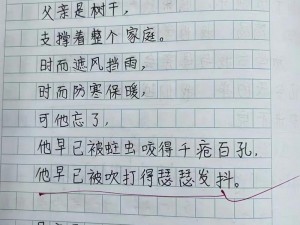 父亲是树干，
支撑着整个家庭。
时而遮风挡雨，
时而防寒保暖，
可他忘了，
他早已被蛀虫咬得千疮百孔，
他早已被吹打得瑟瑟发抖。